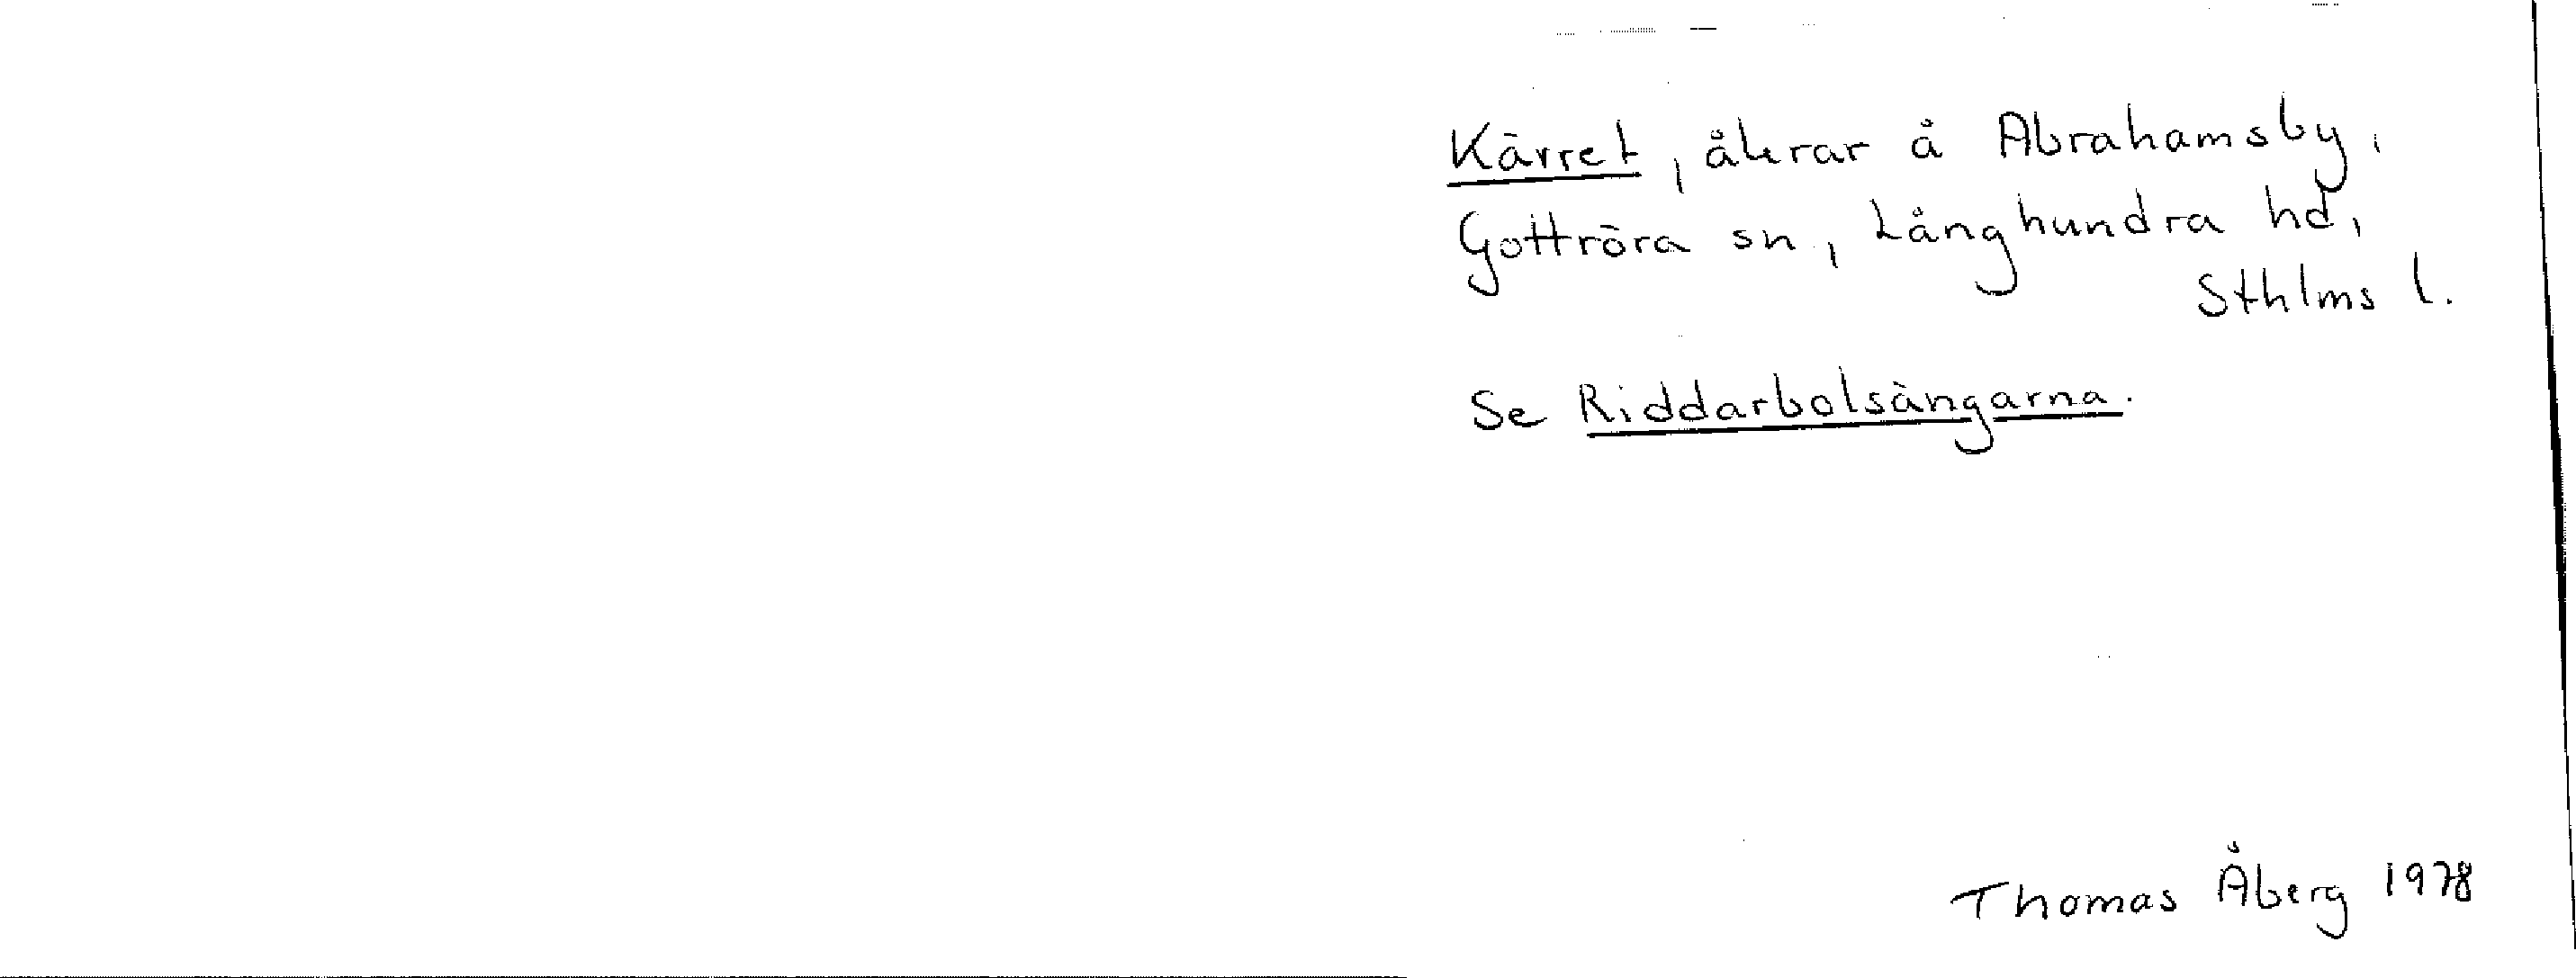 Kärret, åkrar å Abrahamsby,
Gottröra sn, Långhundra hd,
Sthlms l.
Se Riddarbolsängarna.
Thomas Åberg 1978